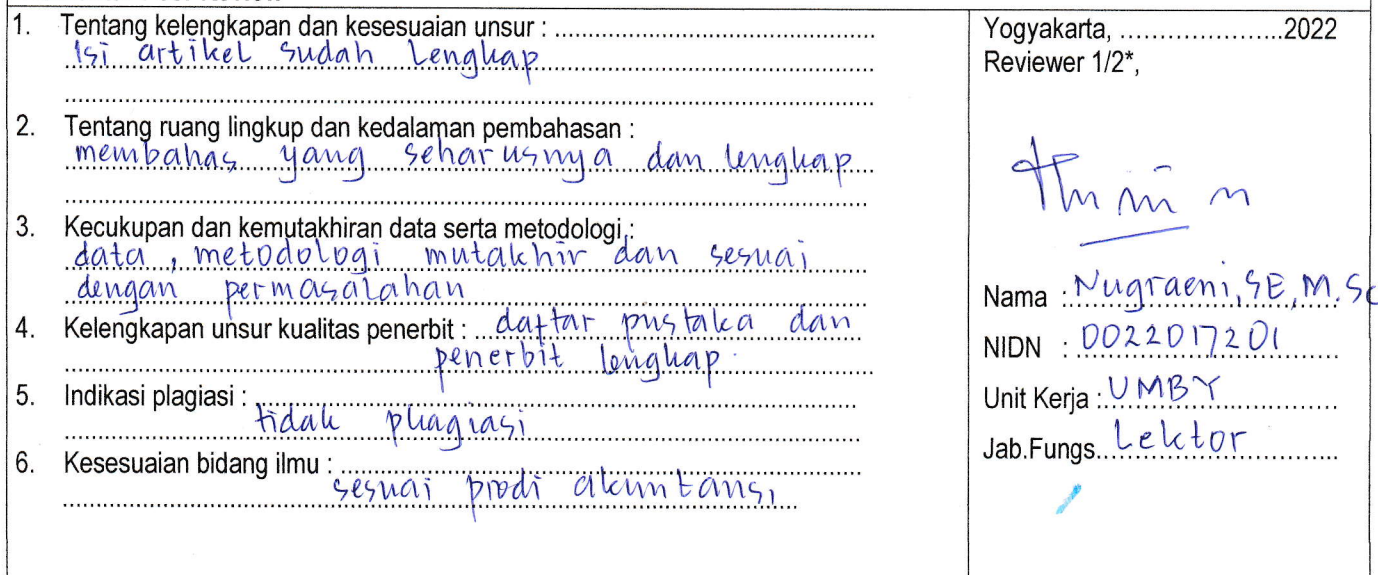 1. Tentang kelengkapan dan kesesuaian unsur : ................................................
Isi artikel sudah Lengkap
2. Tentang ruang lingkup dan kedalaman pembahasan :
membahas yang seharusnya dan lengkap
3. Kecukupan dan kemutakhiran data serta metodologi :
data , metodologi mutakhir dan sesuai
dengan permasalahan
4. Kelengkapan unsur kualitas penerbit : daftar pustaka dan
penerbit lengkap.
5. Indikasi plagiasi :
tidak plhagiasi
6. Kesesuaian bidang ilmu :
sesuai prodi akuntansi
Yogyakarta, ......................2022
Reviewer 1/2*,
Nama : Nugraeni, SE, M.Sc
NIDN : 0022017201
Unit Kerja : UMBY
Jab.Fungs. Lektor